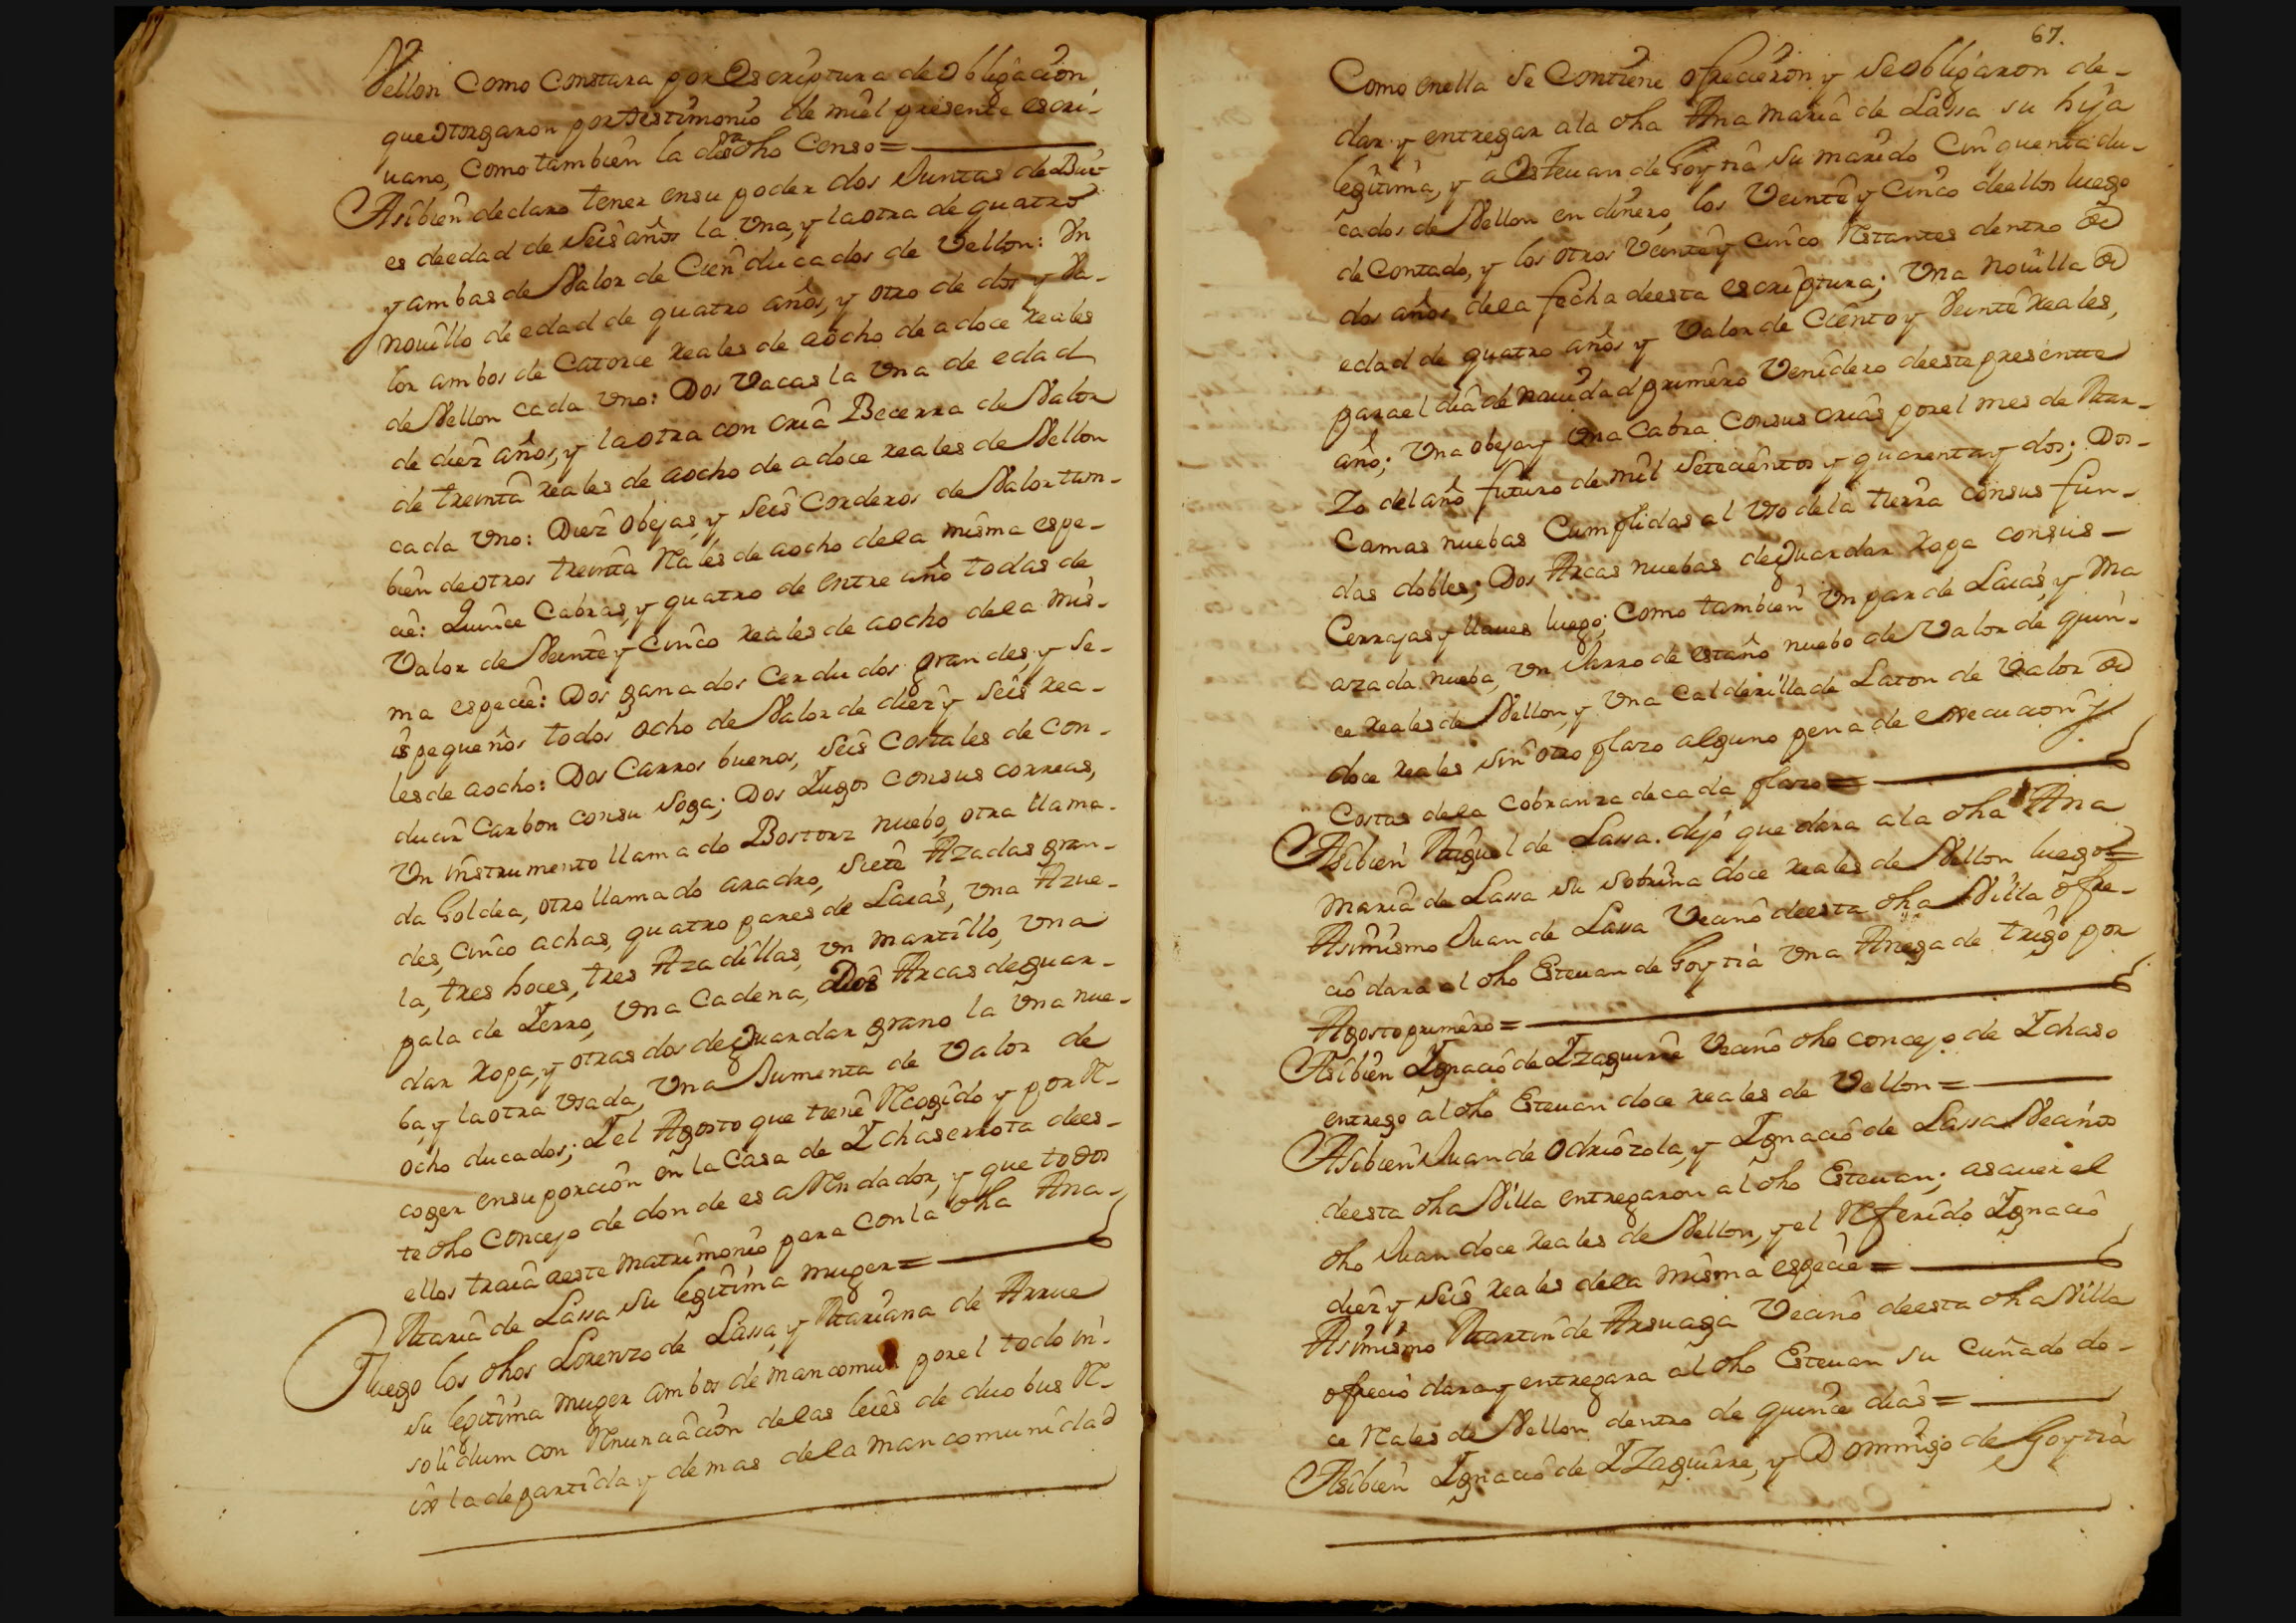 Vellon Como Constara por Escriptura de Obligacion
que otorgaron por testimonio de mi el presente escri-
uano, Como tambien la de dho Censo=
Asibien declaro tener ensu poder dos Juntas de Bue-
es deedad de seis años la Una, y laotra de quatro
y ambas de Valor de Cien ducados de Vellon: Un
novillo de edad de quatro años, y otro de dos y Va-
lor ambos de Catorce reales de aocho de a doce reales
de Vellon cada Uno: Dos Vacas la Una de edad
de diez años, y laotra con cria Becerra de Valor
de treinta reales de aocho de a doce reales de Vellon
cada Uno: Diez Obejas, y seis Corderos de Valor tam-
bien de otros treinta Rales de aocho dela misma espe-
cie: Quince Cabras, y quatro de entre año todas de
Valor de Veinte y Cinco reales de aocho dela mis-
ma especie: Dos ganados Cerdudos grandes, y se-
is pequeños todos ocho de Valor de diez y seis rea-
les de aocho: Dos Carros buenos, seis Costales de Con-
ducir Carbon consu soga; Dos Yugos consus correas,
Un instrumento llamado Bostorz nuebo, otra llama-
da Goldea, otro llamado aradro, siete Azadas gran-
des, Cinco achas, quatro pares de Laias, Una Azue-
la, tres hoces, tres Azadillas, un martillo, Una
pala de Yerro, Una Cadena, Dos Arcas deguar-
dar ropa, y otras dos deguardar grano la Una nue-
ba, y laotra Usada, Una Jumenta de Valor de
ocho ducados; Y el Agosto que tiene Rcogido y por R-
coger ensu porcion en la Casa de Ychaserrota dees-
te dho Concejo de donde es aRendador, y que todos
ellos traia aeste Matrimonio para Conla dha Ana-
Maria de Lassa su legitima muger=
Yluego los dhos Lorenzo de Lassa, y Mariana de Arrue
su legitima muger ambos de mancomun porel todo in-
solidum con Rnunciacion delas leies de duobus R-
is la departida y demas dela mancomunidad
67.
Como enella se Contiene ofrecieron y seobligaron de-
dar y entregar ala dha Ana Maria de Lassa su hija
legitima, y a Esteuan de Goytia su marido Cinquenta du-
cados de Vellon en dinero, los Veinte y Cinco deellos luego
de Contado, y los otros Veinte y Cinco Rstantes dentro de
dos años dela fecha deesta escriptura; Una Novilla de
edad de quatro años y Valor de Ciento y Veinte reales,
parael dia de Navidad primero Venidero deeste presentte
año; Una obeja y Una Cabra Consus Crias porel mes de Mar-
Zo del año futuro de mil setecientos y quarenta y dos; Dos-
Camas nuebas Cumplidas al Uso dela tierra consus fun-
das dobles; Dos Arcas nuebas deguardar ropa consus-
Cerrajas y llaues luego; Como tambien Un par de Laias, y Una
azada nueba, Un Jarro de estaño nuebo de Valor de quin-
ce reales de Vellon, y Una Calderilla de Laton de Valor de
doce reales sin otro plazo alguno pena de execucion y
Costas dela Cobranza decada plazo=
Asibien Miguel de Lassa. dijo que dara ala dha Ana
Maria de Lassa su sobrina doce reales de Vellon luego=
Asimismo Juan de Lassa Vecino deesta dha Villa ofre-
cio dara al dho Esteuan de Goytia Una Anega de trigo por
Agosto primero=
Asibien Ygnacio de Yzaguirre Vecino dho concejo de Ychaso
entrego al dho Esteuan doce reales de Vellon=
Asibien Juan de Odriozola, y Ygnacio de Lassa Vecinos
deesta dha Villa entregaron al dho Esteuan; asauer el
dho Juan doce reales de Vellon, y el Rferido Ygnacio
diez y seis reales dela misma especie=
Asimismo Martin de Arsuaga Vecino deesta dha Villa
ofrecio dara y entregara al dho Esteuan su Cuñado do-
ce Rales de Vellon dentro de quince dias=
Asibien Ygnacio de YZaguirre, y Domingo de Goytia